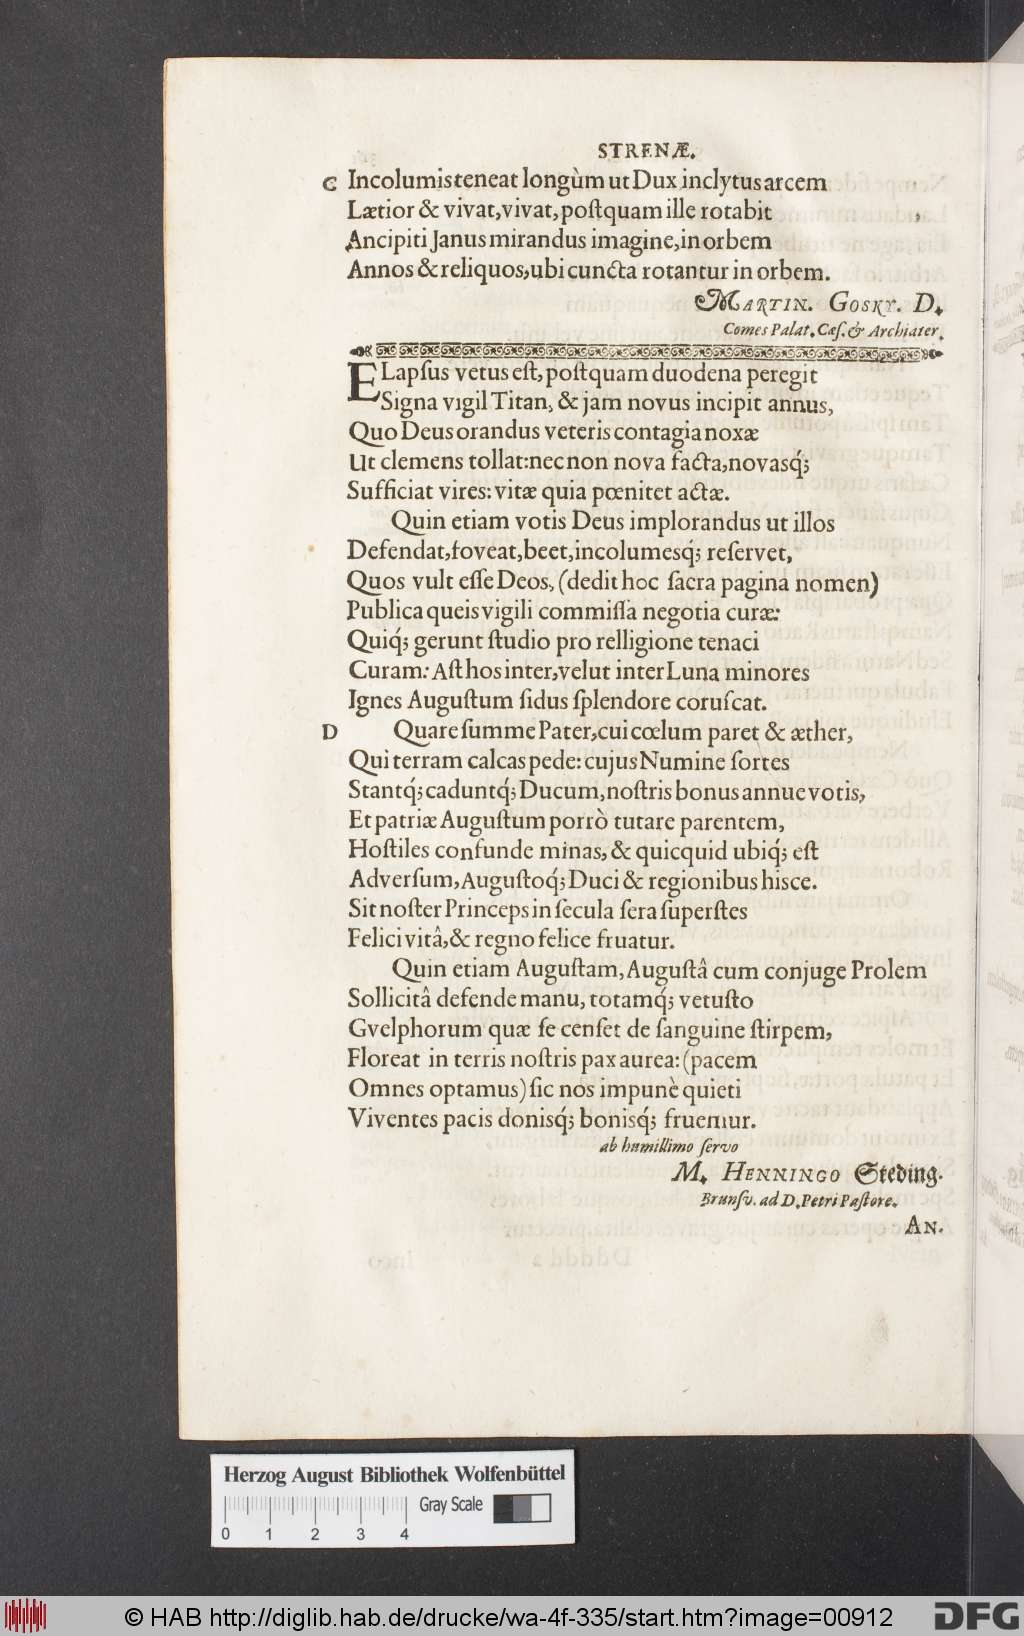 STRENÆ.
C Incolumis teneat longùm ut Dux inclytus arcem
Lætior & vivat, vivat, postquam ille rotabit
Ancipiti Janus mirandus imagine, in orbem
Annos & reliquos, ubi cuncta rotantur in orbem.
MARTIN. GOSKY. D.
Comes Palat. Cæſ. & Archiater.
ELapſus vetus eſt, poſtquam duodena peregit
Signa vigil Titan, & jam novus incipit annus,
Quo Deus orandus veteris contagia noxæ
Ut clemens tollat: nec non nova facta, novasq́;
Sufficiat vires: vitæ quia pœnitet actæ.
Quin etiam votis Deus implorandus ut illos
Defendat, foveat, beet, incolumesq́; reſervet,
Quos vult eſſe Deos, (dedit hoc ſacra pagina nomen)
Publica queis vigili commiſſa negotia curæ:
Quiq́; gerunt ſtudio pro relligione tenaci
Curam: Aſt hos inter, velut inter Luna minores
Ignes Auguſtum ſidus ſplendore coruſcat.
D Quare ſumme Pater, cui cœlum paret & æther,
Qui terram calcas pede: cujus Numine ſortes
Stantq́; caduntq́; Ducum, noſtris bonus annue votis,
Et patriæ Auguſtum porrò tutare parentem,
Hoſtiles confunde minas, & quicquid ubiq́; eſt
Adverſum, Auguſtoq́; Duci & regionibus hisce.
Sit noſter Princeps in ſecula ſera ſuperſtes
Felici vitâ, & regno felice fruatur.
Quin etiam Auguſtam, Auguſtâ cum conjuge Prolem
Sollicitâ defende manu, totamq́; vetuſto
Gvelphorum quæ ſe cenſet de ſanguine ſtirpem,
Floreat in terris noſtris pax aurea: (pacem
Omnes optamus) ſic nos impunè quieti
Viventes pacis donisq́; bonisq́; fruemur.
ab humillimo ſervo
M. HENNINGO Steding.
Brunſv. ad D. Petri Paſtore.
AN.
Herzog August Bibliothek Wolfenbüttel
Gray Scale
0 1 2 3 4
© HAB http://diglib.hab.de/drucke/wa-4f-335/start.htm?image=00912
DFG